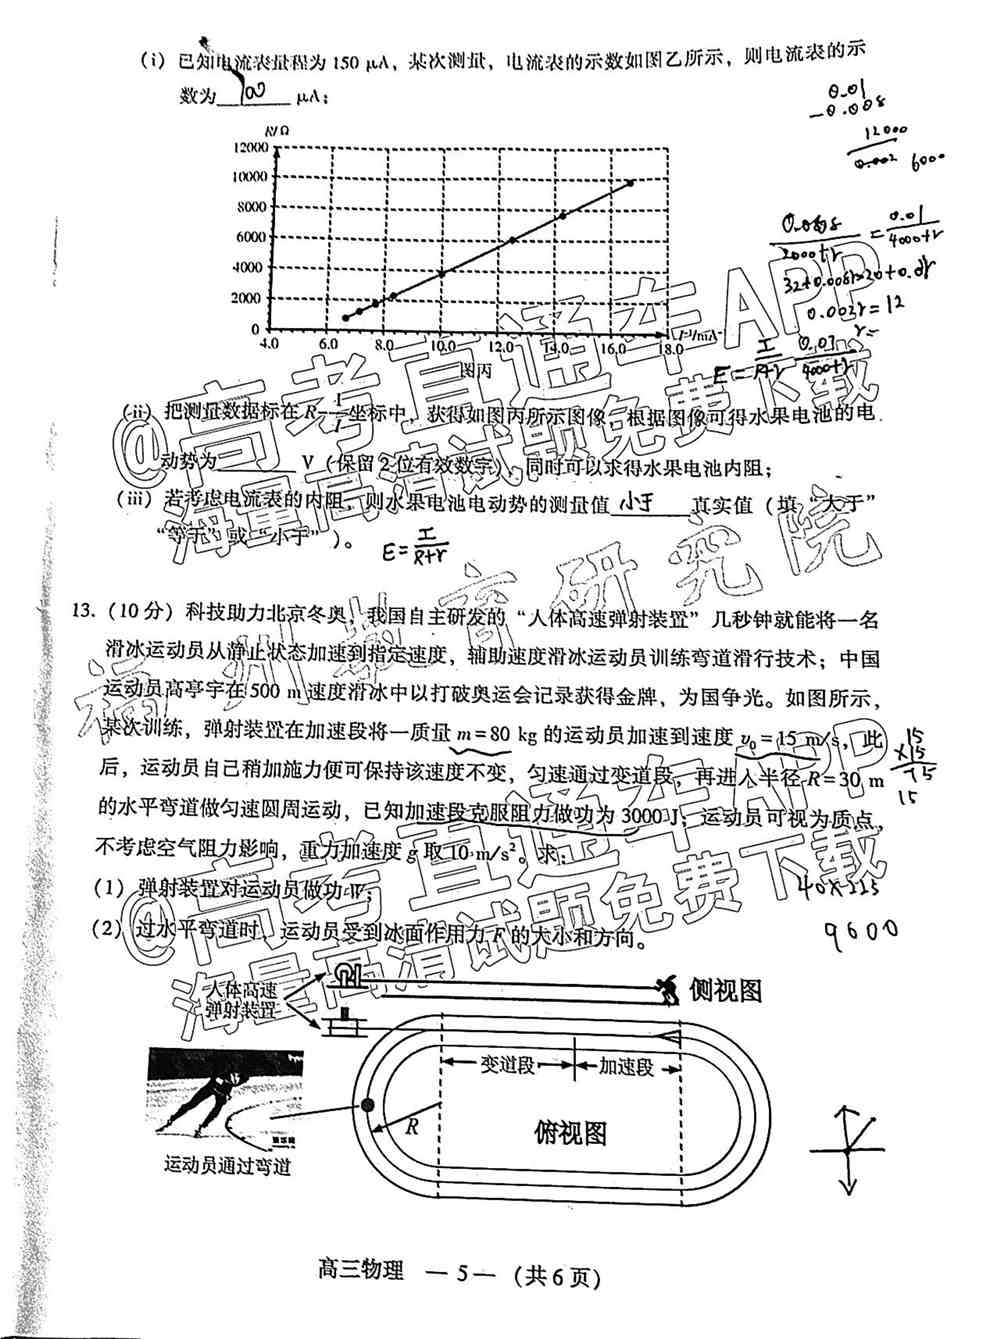 (i) 已知电流表量程为 150 μA，某次测量，电流表的示数如图乙所示，则电流表的示
数为 100 μA；
0.01
-0.008
12000
0.002 6000
R/Ω
12000
10000
8000
6000
4000
2000
0
4.0 6.0 8.0 10.0 12.0 14.0 16.0 18.0
I⁻¹/mA⁻¹
图丙
0.008/2000+r = 0.01/4000+r
32+0.008r=20+0.01r
0.002r=12
r=
E= I/R+r 0.01/4000+r
(ii) 把测量数据标在 R-1/I 坐标中，获得如图丙所示图像，根据图像可得水果电池的电
动势为 V（保留 2 位有效数字），同时可以求得水果电池内阻；
(iii) 若考虑电流表的内阻，则水果电池电动势的测量值 小于 真实值（填“大于”
“等于”或“小于”）。
E= I/R+r
13.（10 分）科技助力北京冬奥，我国自主研发的“人体高速弹射装置”几秒钟就能将一名
滑冰运动员从静止状态加速到指定速度，辅助速度滑冰运动员训练弯道滑行技术；中国
运动员高亭宇在 500 m 速度滑冰中以打破奥运会记录获得金牌，为国争光。如图所示，
某次训练，弹射装置在加速段将一质量 m=80 kg 的运动员加速到速度 v₀=15 m/s，此
后，运动员自己稍加施力便可保持该速度不变，匀速通过变道段，再进入半径 R=30 m
的水平弯道做匀速圆周运动，已知加速段克服阻力做功为 3000 J；运动员可视为质点，
不考虑空气阻力影响，重力加速度 g 取 10 m/s²。求：
15
×15
75
15
(1) 弹射装置对运动员做功 W；
40×225
(2) 过水平弯道时，运动员受到冰面作用力 F 的大小和方向。
9600
人体高速
弹射装置
侧视图
变道段
加速段
R
俯视图
运动员通过弯道
高三物理 —5— （共 6 页）
@高考直通车APP
海量高清试题免费下载
福州教育研究院
@高考直通车APP
海量高清试题免费下载